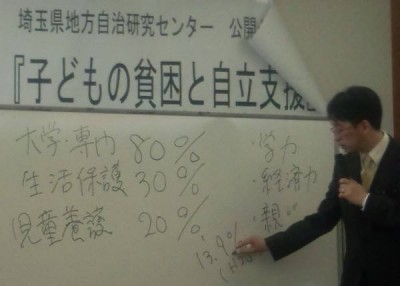 埼玉県地方自治研究センター 公開
『子どもの貧困と自立支援
大学・専門 80%
生活保護 30%
児童養護 20%
13.9%
・学力
・経済力
・親